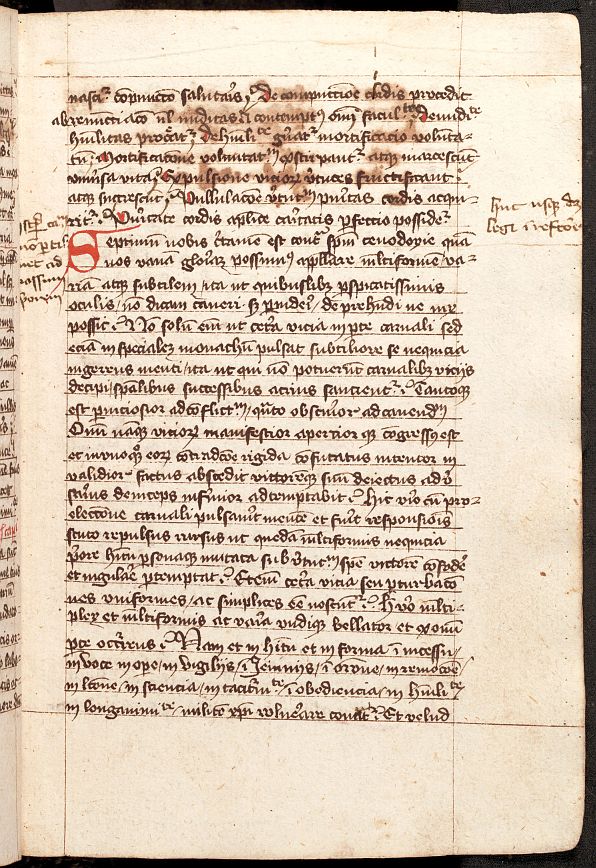 nascit᷑ copuncto salutaris De compunctione cordis procedit
abrenuctiaco id nuditas i contempt9 omi facul᷑tis De nudite
humilitas procreat᷑ De humilite gnat᷑ mortificacio volunta
tu Mortificacone voluntatu exstirpant᷑ atq marcescut
univsa vita Expulsione vicior vtutes fructificant
atq succrescut Pullulacone vtutu puritas cordis acqui
rit᷑ Puritate cordis aplice caritatis perfectio posside᷑
Septimum nobis certamen est contra spm cenodoxie quam
nos vana gloria possumus appellare multiforme va-
ria atq subtilem ita ut quibuslibz pspicatissimis
oculis no dicam caveri s pvideri deprehendi ve vix
possit No solu eni ut cetera vicia in pte carnali sed
ecia in speciales monachum pulsat subtiliore se nequicia
ingerens menti ita ut qui no potuerut carnalibz viciis
decipi spalibus successibus acrius saucient᷑ Tantoq
est pniciosior ad conflictu quato obscurior ad cavendu
Omi naq viciorum manifestior apertior q congressus est
et in unoquoq eorum contradicone rigida cofutatus intentor in
validior factus abscedit victoremq suu deiectus ad
sarius deinceps infirmior adtemptabit Hic vero cu pro-
electone carnali pulsaverit mente et fuerit responsionis
scuto repulsus rursus ut queda multiformis nequicia
priore hitu psonaq mutata sub vtutu spe victore cofode
et iugulare ptemptat Eteni cetera vicia seu pturbaco
nes uniformes ac simplices ee noscunt᷑ hic vero multi-
plex et multiformis ac varia undiq bellator et ex omi
pte occurrens Nam et in hitu et in forma i incessu
in voce in ope in vigiliis i ieiuniis i oracone in remocoe
in lcone in sciencia in taciturnite i obediencia in humilite
in longanimite milite xpi vulnerare conat᷑ Et velud
huc usq dz
legi i refectore